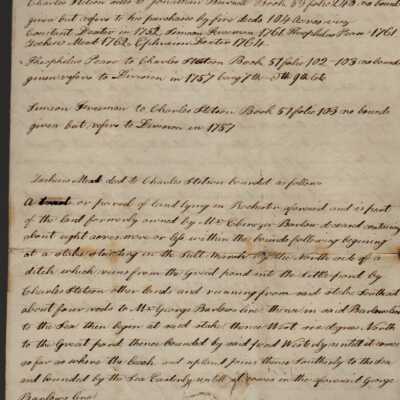 Charles Stetson sells to Jonathan Burwell Book 59 folio 243 no bounds
given but refers to his purchases by five deeds 104 acres viz
Constant Dexter in 1752, Simson Freeman 1761 Theophilus Pease 1761
Joshua Mead 1762. Ephraim Dexter 1764.
Theophilus Pease to Charles Stetson Book 51 folio 102-103 no bounds
given refers to Division in 1757 being 7th 8th 9th lots
Simson Freeman to Charles Stetson Book 51 folio 103 no bounds
given but refers to Division in 1757
Joshua Mead deed to Charles Stetson bounded as follows
A tract or parcel of land lying in Rochester aforesaid and is part
of the land formerly owned by Mr Ebenezer Barlow decd and containing
about eight acres more or less within the bounds following begining
at a stake standing in the Salt Meadow by the North side of a
ditch which runs from the Great pond into the little pond by
Charles Stetson other lands and running from said stake South about
about four rods to Mr George Barlows line thence in said Barlows line
to the Sea then begin at said stake thence West degrees North
to the Great pond thence bounded by said pond Westerly untill it comes
so far as where the beach and upland joins thence Southerly to the Sea
and bounded by the Sea Easterly untill it comes in the aforesaid George
Barlows line